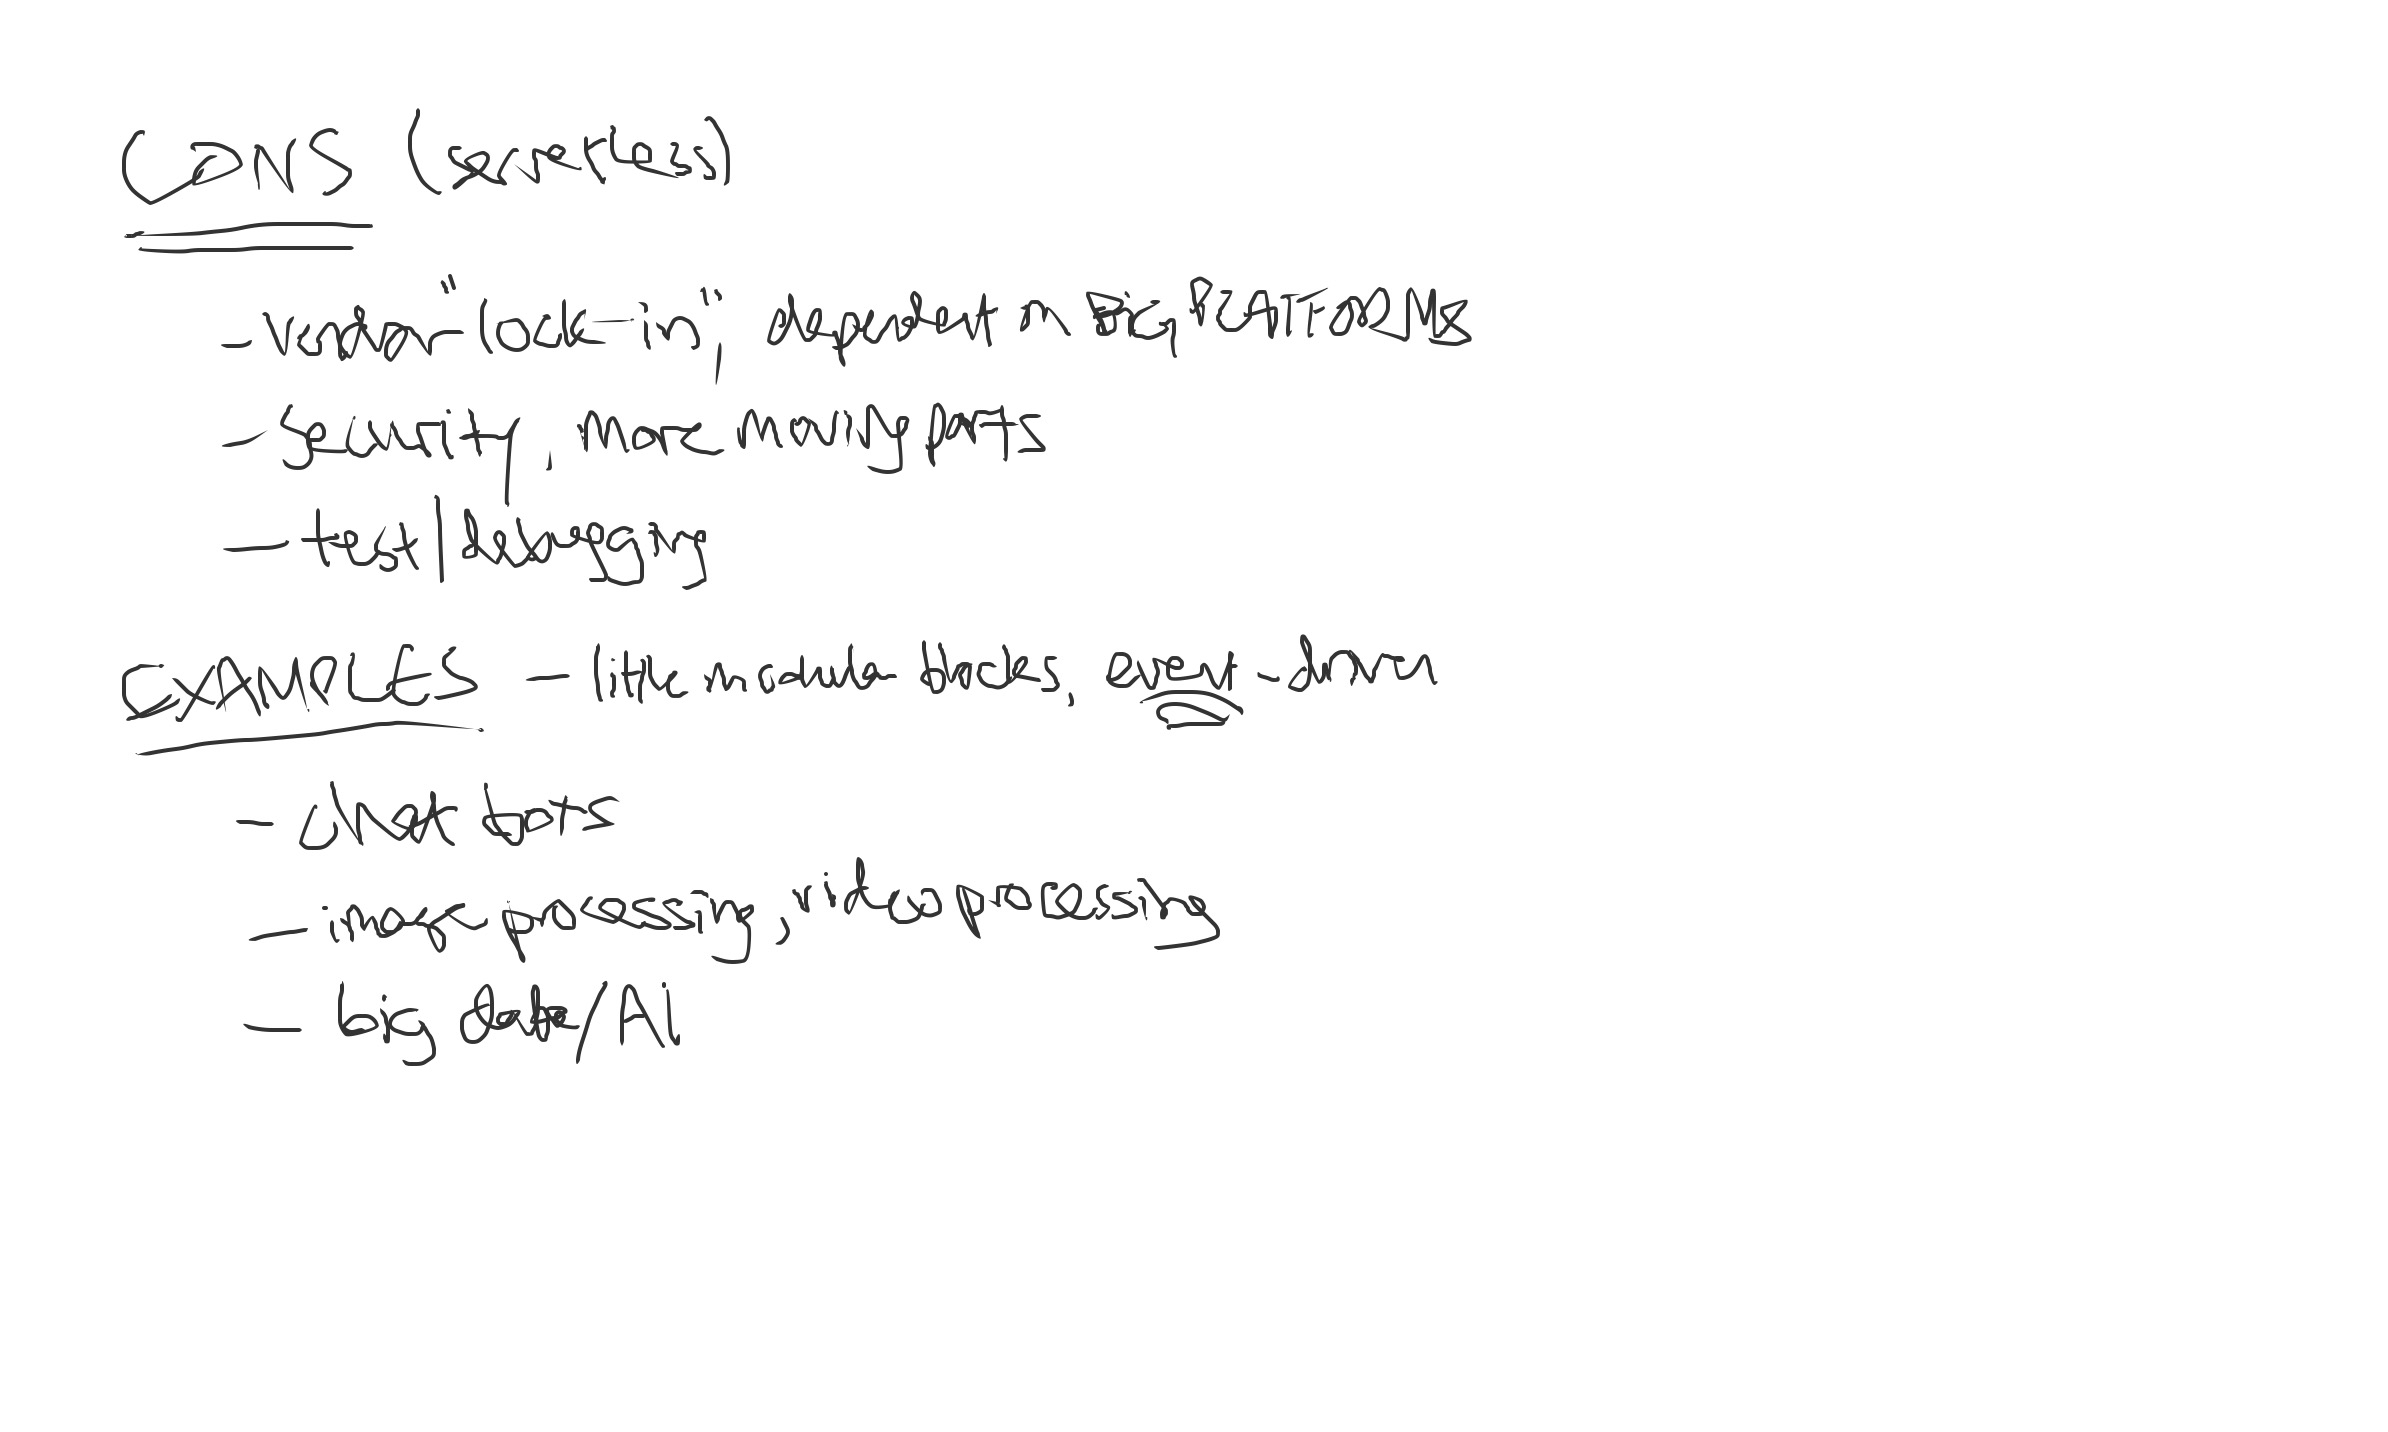 CONS (serverless)
- vendor "lock-in", dependent on Big PLATFORMS
- security, more moving parts
- test/debugging
EXAMPLES - little modular blocks, event-driven
- chat bots
- image processing, video processing
- big data/AI